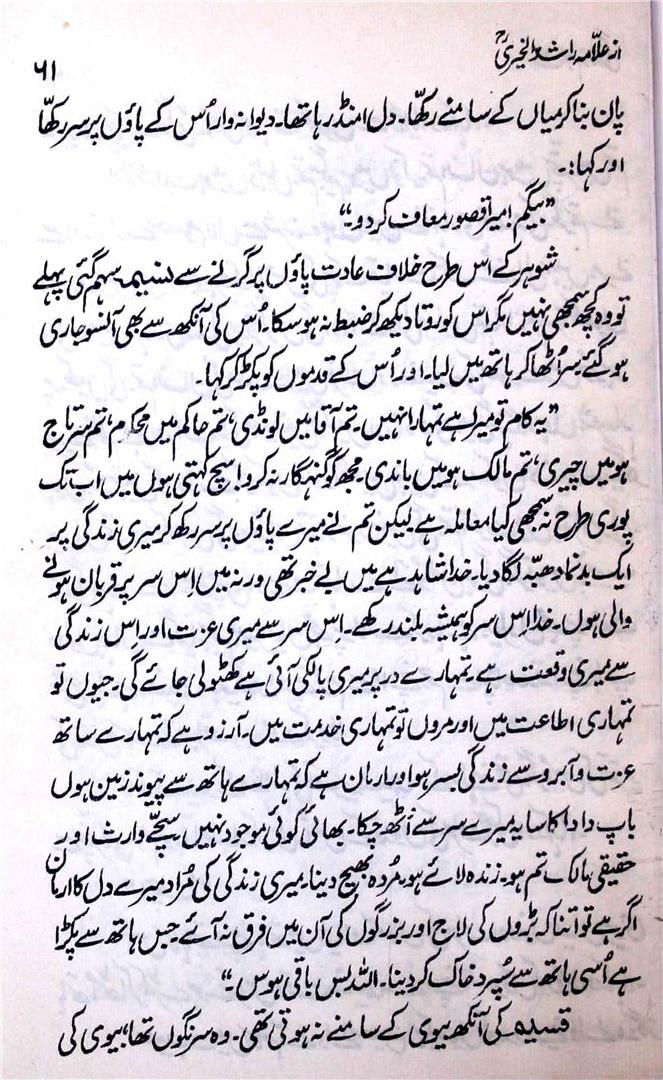 از علّامہ راشد الخیریؒ
۶۱
پان بنا کر میاں کے سامنے رکھّا۔ دل امنڈ رہا تھا۔ دیوانہ وار اُس کے پاؤں پر سر رکھّا
اور کہا:۔
”بیگم! میرا قصور معاف کر دو۔“
شوہر کے اس طرح خلاف عادت پاؤں پر گرنے سے نسیمہ سہم گئی پہلے
تو وہ کچھ سمجھی نہیں مگر اس کو روتا دیکھ کر ضبط نہ ہو سکا۔ اُس کی آنکھ سے بھی آنسو جاری
ہو گئے سر اُٹھا کر ہاتھ میں لیا۔ اور اُس کے قدموں کو پکڑ کر کہا۔
”یہ کام تو میرا ہے تمہارا نہیں۔ تم آقا میں لونڈی، تم حاکم میں محکوم، تم سرتاج
ہو میں چیری، تم مالک ہو میں باندی۔ مجھ کو گنہگار نہ کرو! سچ کہتی ہوں میں اب تک
پوری طرح نہ سمجھی کیا معاملہ ہے لیکن تم نے میرے پاؤں پر سر رکھ کر میری زندگی پر
ایک بدنما دھبّہ لگا دیا۔ خدا شاہد ہے میں بے خبر تھی ورنہ میں اِس سر پر قربان ہونے
والی ہوں۔ خدا اِس سر کو ہمیشہ بلند رکھے۔ اِس سر سے میری عزت اور اِس زندگی
سے میری وقعت ہے۔ تمہارے در پر میری پالکی آئی ہے کھٹولی جائے گی۔ جیوں تو
تمہاری اطاعت میں اور مروں تو تمہاری خدمت میں۔ آرزو ہے کہ تمہارے ساتھ
عزت و آبرو سے زندگی بسر ہو اور ارمان ہے کہ تمہارے ہاتھ سے پیوند زمین ہوں
باپ دادا کا سایہ میرے سر سے اُٹھ چکا۔ بھائی کوئی موجود نہیں۔ سچّے وارث اور
حقیقی مالک تم ہو۔ زندہ لائے ہو، مُردہ بھیج دینا۔ میری زندگی کی مُراد میرے دل کا ارمان
اگر ہے تو اتنا کہ بڑوں کی لاج اور بزرگوں کی آن میں فرق نہ آئے۔ جس ہاتھ سے پکڑا
ہے اُسی ہاتھ سے سُپرد خاک کر دینا۔ اللہ بس باقی ہوس۔“
قسیم کی آنکھ بیوی کے سامنے نہ ہوتی تھی۔ وہ سرنگوں تھا، بیوی کی